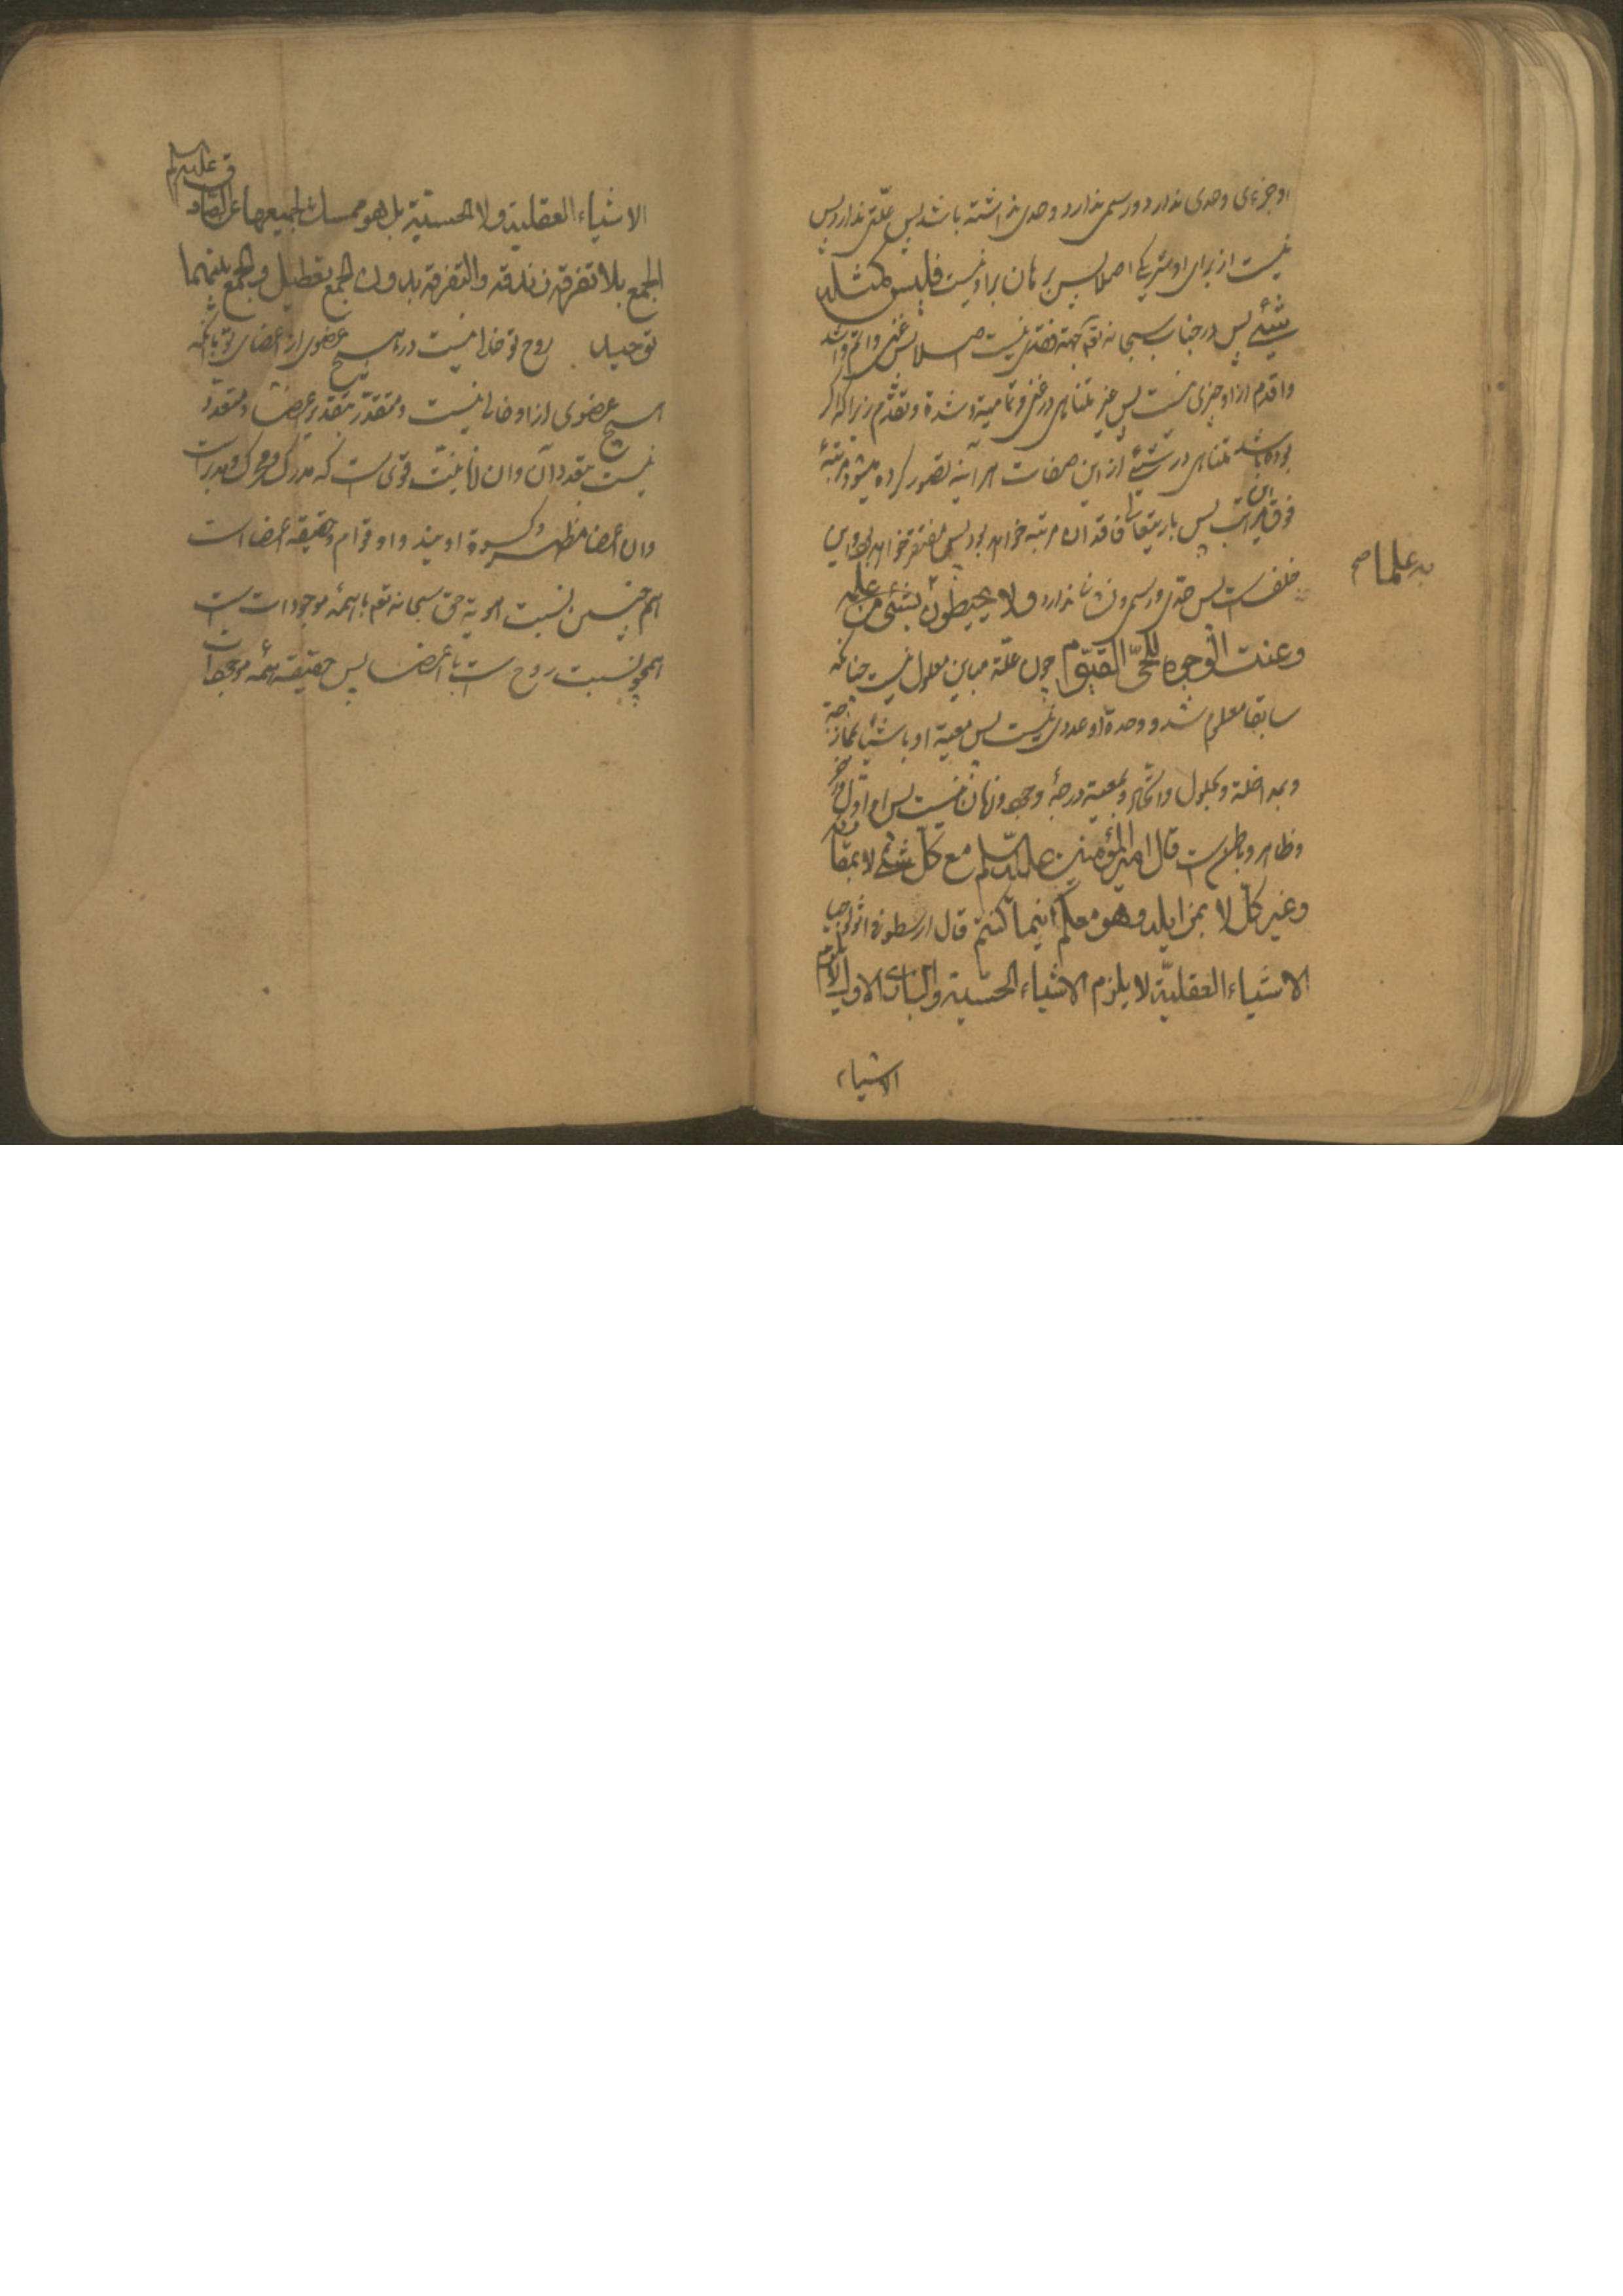 او جزءی وحدی ندارد ورسمی ندارد وحدی نداشته باشد پس علتی ندارد پس
نیست از برای او شریکی اصلا پس برهان برا ونیست فلیس کمثله
شیئ پس در جناب سبحانه تعم جهة نقصی نیست اصلا پس غنی واتم واشد
واقدم از او چیزی نیست پس غیر متناهی در غنی وتمامیة وشدة وتقدم زیرا که اگر
بوده باشد متناهی در شیئ از این صفات هر آینه تصور کرده میشود مرتبهٔ
فوق این مراتب پس باریتعالی فاقد ان مرتبه خواهد بود پس مفتقر خواهد بود واین
خلفست پس حدی ورسمی ونشانی ندارد ولا یحیطون بشیئ من علمه
به علما صح
وعنت الوجوه للحی القیوم چون علة مباین معلول نیست چنانکه
سابقا معلوم شد و وحدة او عددی نیست پس معیة او باشیاء بممازجة
وبمداخلة وبحلول واتحاد وبمعیة درجهٔ وجود وزمان نیست پس او اول واخر
وظاهر وباطن است قال امیر المؤمنین علیه السلم مع کل شئ لا بمقارنه
وغیر کل لا بمزایله وهو معکم اینما کنتم قال ارسطو فی اثولوجیا
الاشیاء العقلیة لا یلزم الاشیاء الحسیة والباری الاول لا یلزم
الاشیاء
الاشیاء العقلیة ولا الحسیة بل هو ممسک لجمیعها عن الصادق علیه السلم
الجمع بلا تفرقة زندقه والتفرقة بدون الجمع تعطیل والجمع بینهما
توحید روح تو خدا نیست در هیچ عضوی از اعضای تو با آنکه
هیچ عضوی از او خالی نیست ومتقدر بتقدیر اعضا ومتعدد
نیست بتعدد آن وان انانیت قوی است که مدرک ومحرک ومدبر است
وان اعضا مظهر وکسوة اویند واو قوام وحقیقة اعضا است
همچنین نسبت هویة حق سبحانه تعم با همهٔ موجودات است
همچو نسبت روح است با اعضا پس حقیقة همهٔ موجودات